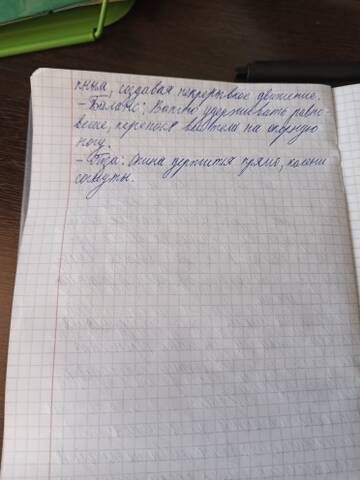 ным, создавая непрерывное движение.
- Баланс: Важно удерживать равно-
весие, перенося вес тела на опорную
ногу.
- Поза: Спина держится прямо, колени
согнуты.